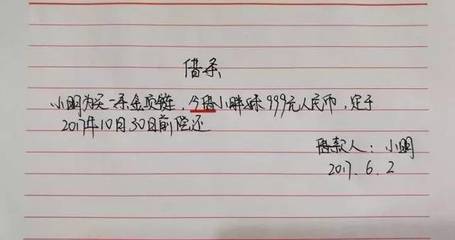 借条
小明为买一条金项链，今借小胖球999元人民币，定于
2017年10月30日前偿还
借款人：小明
2017.6.2